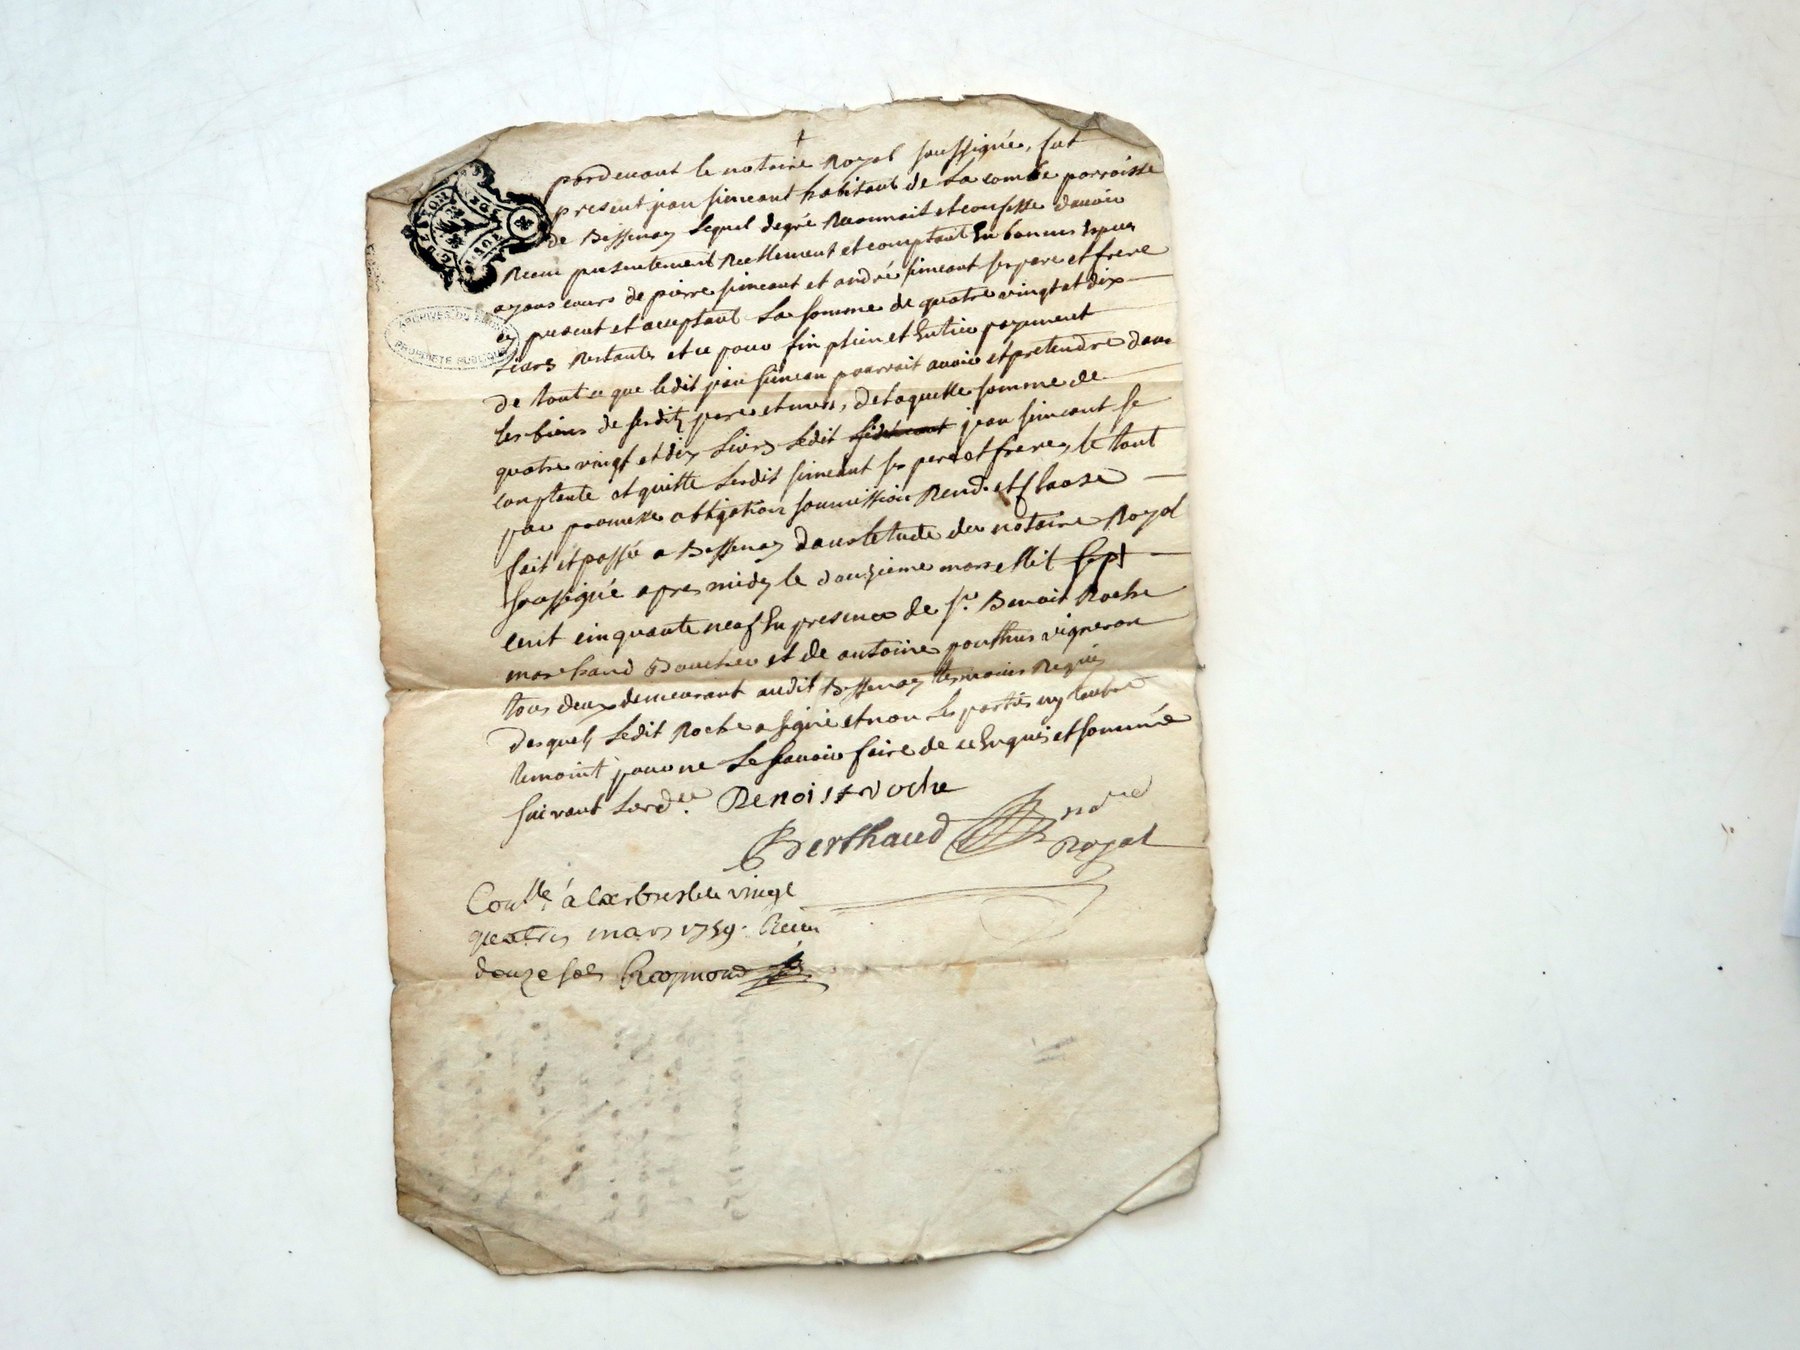 pardevant le notaire Royal soussigné, fut
present jean simeant habitant de la combe parroisse
de Bessenay lequel degré Reconnait et confesse davoir
Receu presentement Reellement et comptant En bonnes Espces
ayans cours de pierre simeant et andré simeant ses pere et frere
cy present et acceptant La somme de quatre vingt et dix
Livres Restantes et ce pour fin plien et Entier payement
de tout ce que ledit jean simean pourroit avoir et pretendre dans
les biens de sesdits pere et mere, de laquelle somme de
quatre vingt et dix Livres Ledit jean simeant se
contente et quitte Lesdit simeant ses pere et frere, le tout
par promesse obligation soumission Renon. et Clause
fait et passé a Bessenay dans letude du notaire Royal
soussigné apres midy le douzieme mars Mil sept
cent cinquante neuf En presence de sr. Benoit Roche
marchand Boucher et de antoine pouthus vigneron
tous deux demeurant audit Bessenay temoins Requis
desquels Ledit Roche a signé et non Les parties ny lautre
temoint pour ne Le scavoir faire de ce Enquis et sommé
suivant Lord.ce Benoist roche
Berthaud nore
Royal
Conlle. á Larbresle le vingt
quatre mars 1759. Receu
douze sols Reymond
ARCHIVES DU RHONE
PROPRIETE PUBLIQUE